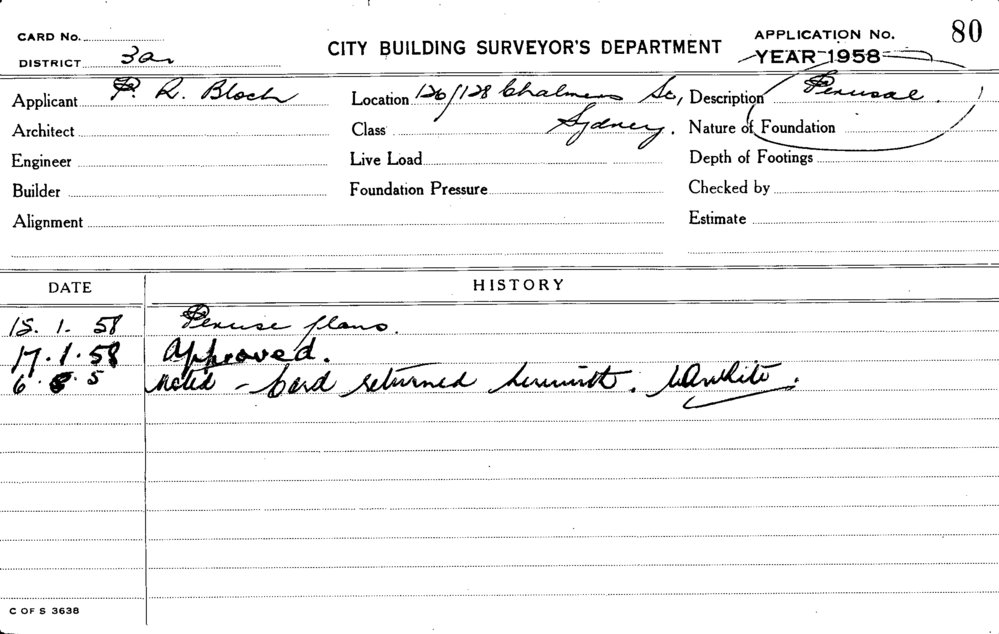 CARD No.
DISTRICT 3a
CITY BUILDING SURVEYOR'S DEPARTMENT
APPLICATION No. 80
YEAR 1958
Applicant P. R. Bloch
Location 126/128 Chalmers St, Sydney.
Description Perusal.
Architect
Class
Nature of Foundation
Engineer
Live Load
Depth of Footings
Builder
Foundation Pressure
Checked by
Alignment
Estimate
DATE HISTORY
15. 1. 58 Peruse plans.
17. 1. 58 Approved.
6. 5 Noted - Card returned herewith.
C OF S 3638